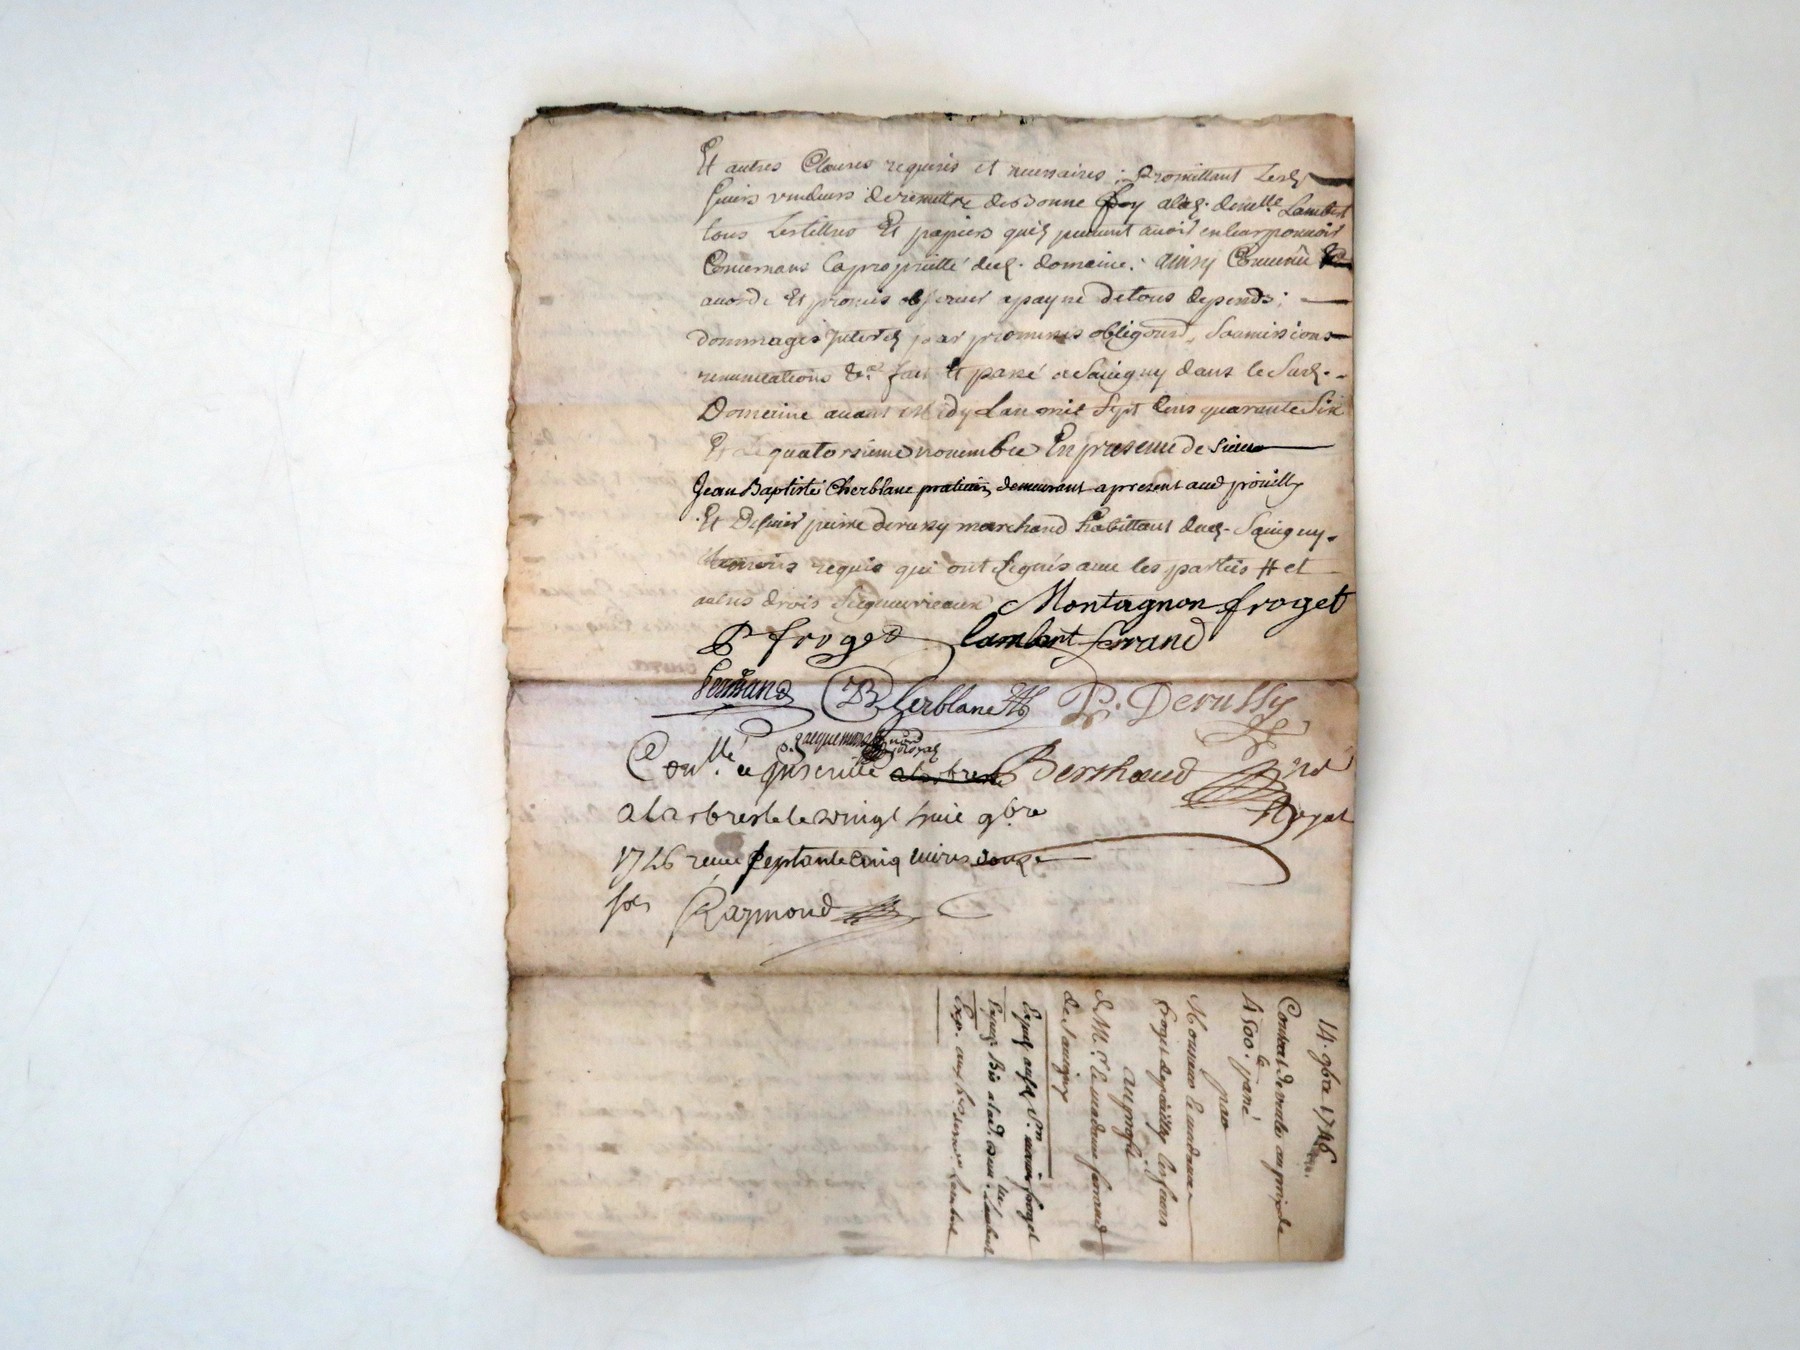 Et autres Clauses requises et necessaires; promettant Lesd
sieurs vendeurs deremettre debonne foy alad. demlle. Lambert
tous Lestittres Et papiers quils peuvent avoir enleur pouvoir
Concernans lapropriette dud. domaine. ainsy Convenu &
acordé Et promis observer apayne detous depends;
dommages Jnterets par promesses obligaons. Soumissions
renunciations &a. fait Et passé aSavigny dans le Susd.
Domaine avant Midy Lan mil Sept Cens quarante Six
Et Le quatorsieme novembre En presence de Sieur
Jean Baptiste Cherblanc praticien demeurant apresent aud poüilly
Et De sieur pierre derussy marchand habittant dud. Savigny
temoins requis qui ont Signés avec les parties # et
autres droits Seigneurieaux Montagnon froget
P froget lambert ferrand
ferrand JB Cherblanc P. Derussy
p. Jacquemont nore royal
Conllé. et jnscritte alarbresle Berthaud nre
Royal
alarbresle le vingt huit 9bre
1746 receu septante cinq livres douze
sols Raymond
14. 9bre 1746.
Contrat de vente au prix de
4500. le passé
par
Monsieur le madame
froget depoüilly les sieurs
au profit
de M. Et le madame ferrand
de Savigny
Exped. aud. Sr. froget
Exp. aux